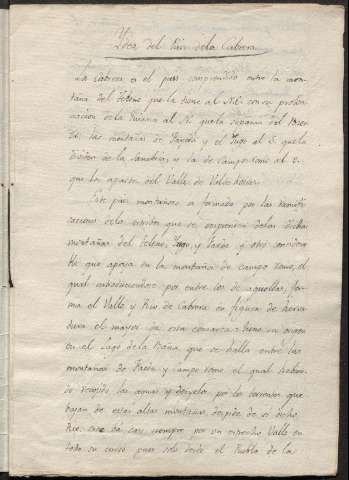 Ydea del Pais de la Cabrera
La Cabrera es el pais comprendido entre la mon-
taña del Teleno que la tiene al NE. con su prolon-
gacion de la Guiana al N. que la separan del Bier-
zo, las montañas de y el Yugo al S. que la
dividen de la Sanabria, y la de Campo romo al O.
que la apartan del Valle de Valdeorras.
Este pais montañoso es formado por las ramifi-
caciones de la que se desprenden de las dichas
montañas del Teleno, Yugo, y y otro considera
ble que apoya en la montaña de campo romo, el
qual introduciendose por entre los de aquellas, for-
ma el Valle y Rio de Cabrera en figura de herra-
dura el mayor de esta comarca y tiene su origen
en el Lago de la Baña que se halla entre las
montañas de y Campo romo el qual despues
de recojido las aguas y por los torrentes que
bajan de estas altas montañas despide de si dicho
Rio; este da casi siempre por un estrecho Valle en
todo su curso pues solo desde el Pueblo de la